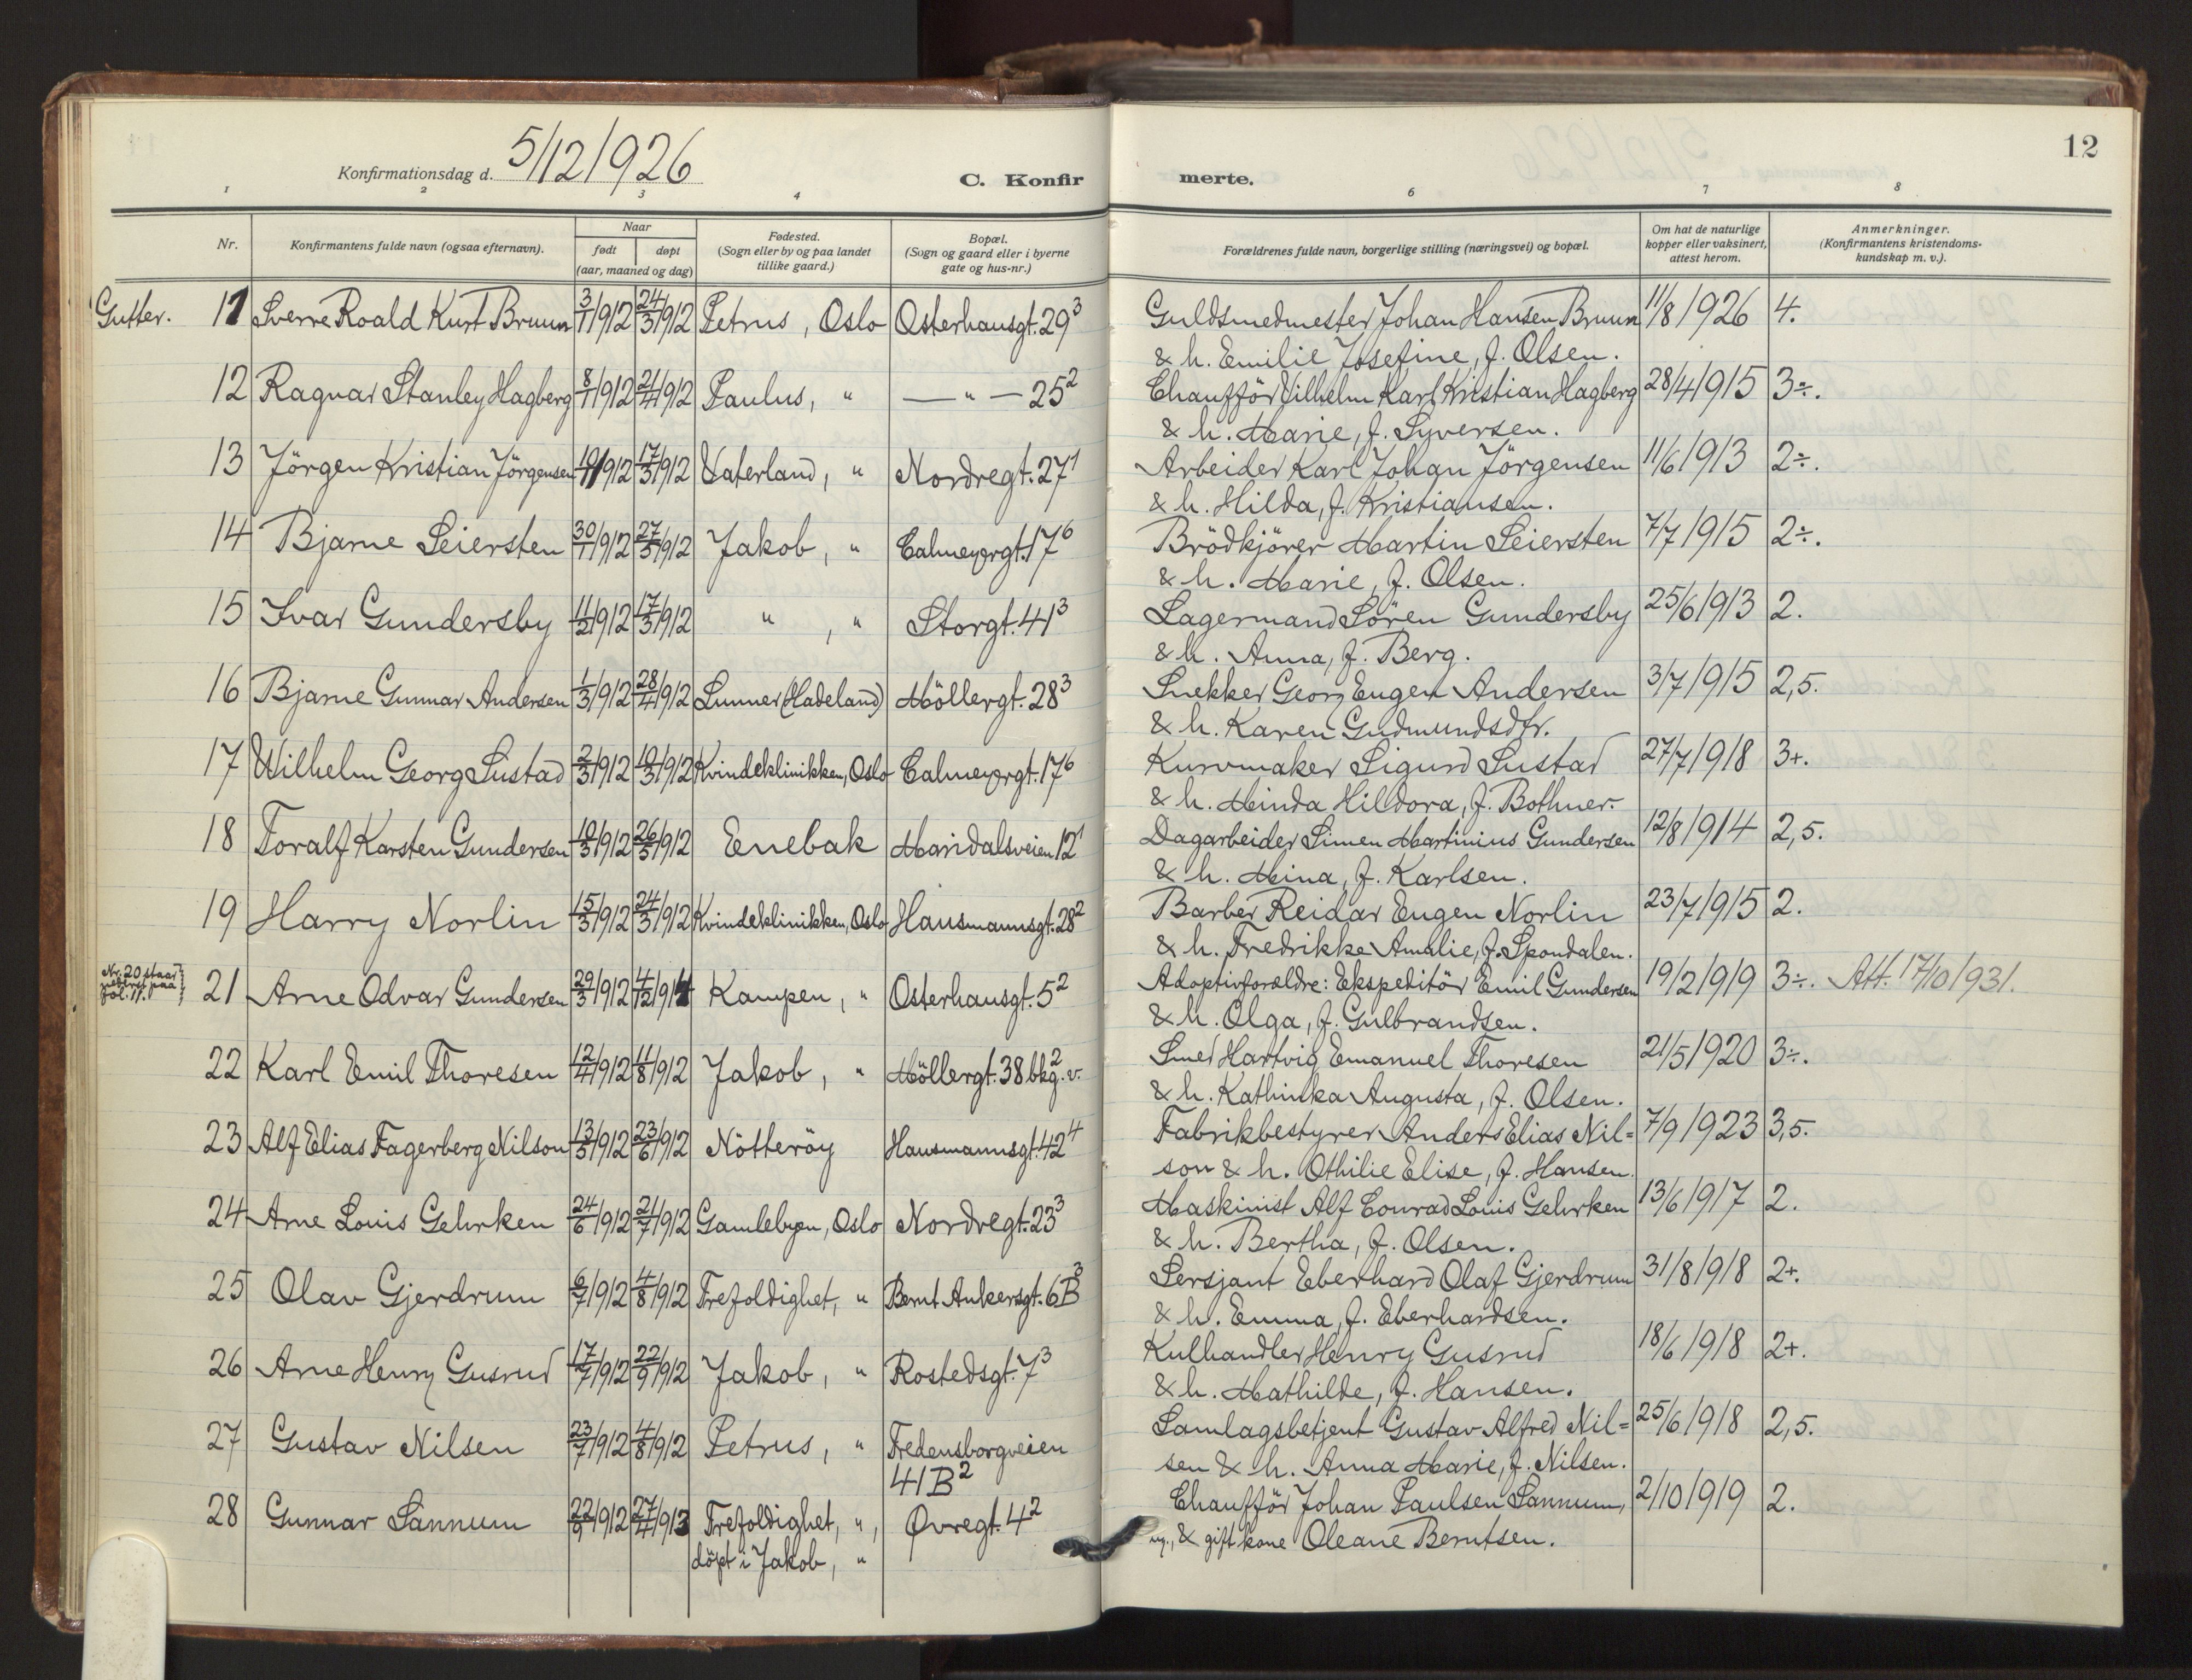 12
Konfirmationsdag d. 5/12/1926
C. Konfirmerte.
1 2 3 4 6 7 8
Nr. Konfirmantens fulde navn (ogsaa efternavn). Naar født døpt (aar, maaned og dag) Fødested. (Sogn eller by og paa landet tillike gaard.) Bopæl. (Sogn og gaard eller i byerne gate og hus-nr.) Forældrenes fulde navn, borgerlige stilling (næringsvei) og bopæl. Om hat de naturlige kopper eller vaksinert, attest herom. Anmerkninger. (Konfirmantens kristendomskundskap m. v.).
Gutter. 11 Sverre Roald Kurt Bruun 3/1 1912 24/3 1912 Petrus, Oslo Osterhausgt. 29³ Guldsmedmester Johan Hansen Bruun 11/8/1926 4.
& h. Emilie Josefine, f. Olsen.
12 Ragnar Stanley Hagberg 8/1 1912 21/4 1912 Paulus, " — " — 25² Chaufför Vilhelm Karl Kristian Hagberg 28/4/1915 3÷.
& h. Marie, f. Syversen.
13 Jörgen Kristian Jörgensen 19/1 1912 17/3 1912 Vaterland, " Nordregt. 27¹ Arbeider Karl Johan Jörgensen 11/6/1913 2÷.
& h. Hilda, f. Kristiansen.
14 Bjarne Seiersten 30/1 1912 27/5 1912 Jakob, " Calmeyergt. 17⁶ Brödkjörer Martin Seiersten 7/7/1915 2÷.
& h. Marie, f. Olsen.
15 Ivar Gundersby 11/2 1912 17/3 1912 " , " Storgt. 41³ Lagermand Sören Gundersby 25/6/1913 2.
& h. Anna, f. Berg.
16 Bjarne Gunnar Andersen 1/3 1912 28/4 1912 Lunner (Hadeland) Möllergt. 28³ Snekker Georg Eugen Andersen 3/7/1915 2,5.
& h. Karen Gudmundsdtr.
17 Wilhelm Georg Sustad 2/3 1912 10/3 1912 Kvindeklinikken, Oslo Calmeyergt. 17⁶ Kurvmaker Sigurd Sustad 27/7/1918 3+.
& h. Minda Hildora, f. Bothner.
18 Toralf Karsten Gundersen 10/3 1912 26/5 1912 Enebak Maridalsveien 12¹ Dagarbeider Simen Martinius Gundersen 12/8/1914 2,5.
& h. Mina, f. Karlsen.
19 Harry Norlin 15/3 1912 24/3 1912 Kvindeklinikken, Oslo Hausmannsgt. 28² Barber Reidar Eugen Norlin 23/7/1915 2.
& h. Fredrikke Amalie, f. Spondalen.
Nr. 20 staar nederst paa fol. 11. 21 Arne Odvar Gundersen 29/3 1912 4/12 1914 Kampen, " Osterhausgt. 5² Adoptivforældre: Ekspeditör Emil Gundersen 19/2/1919 3÷. Att. 17/10/1931.
& h. Olga, f. Gulbrandsen.
22 Karl Emil Thoresen 12/4 1912 11/8 1912 Jakob, " Möllergt. 38 bkg.² v. Smed Hartvig Emanuel Thoresen 21/5/1920 3÷.
& h. Kathinka Augusta, f. Olsen.
23 Alf Elias Fagerberg Nilson 13/5 1912 23/6 1912 Nötteröy Hausmannsgt. 42⁴ Fabrikbestyrer Anders Elias Nil= 7/9/1923 3,5.
son & h. Othilie Elise, f. Hansen.
24 Arne Louis Gehrken 24/6 1912 21/7 1912 Gamlebyen, Oslo Nordregt. 23³ Maskinist Alf Conrad Louis Gehrken 13/6/1917 2.
& h. Bertha, f. Olsen.
25 Olav Gjerdrum 6/7 1912 4/8 1912 Trefoldighet, " Bernt Ankersgt. 6B³ Sersjant Eberhard Olaf Gjerdrum 31/8/1918 2+.
& h. Emma, f. Eberhardsen.
26 Arne Henry Gusrud 17/7 1912 22/9 1912 Jakob, " Rostedsgt. 7³ Kulhandler Henry Gusrud 18/6/1918 2+.
& h. Mathilde, f. Hansen.
27 Gustav Nilsen 23/7 1912 4/8 1912 Petrus, " Fredensborgveien 41B² Samlagsbetjent Gustav Alfred Nil= 25/6/1918 2,5.
sen & h. Anna Marie, f. Nilsen.
28 Gunnar Sannum 22/9 1912 27/4 1913 Trefoldighet, ", Øvregt. 4² Chaufför Johan Paulsen Sannum, 2/10/1919 2.
döpt i Jakob, " ug., & gift kone Oleane Berntsen.